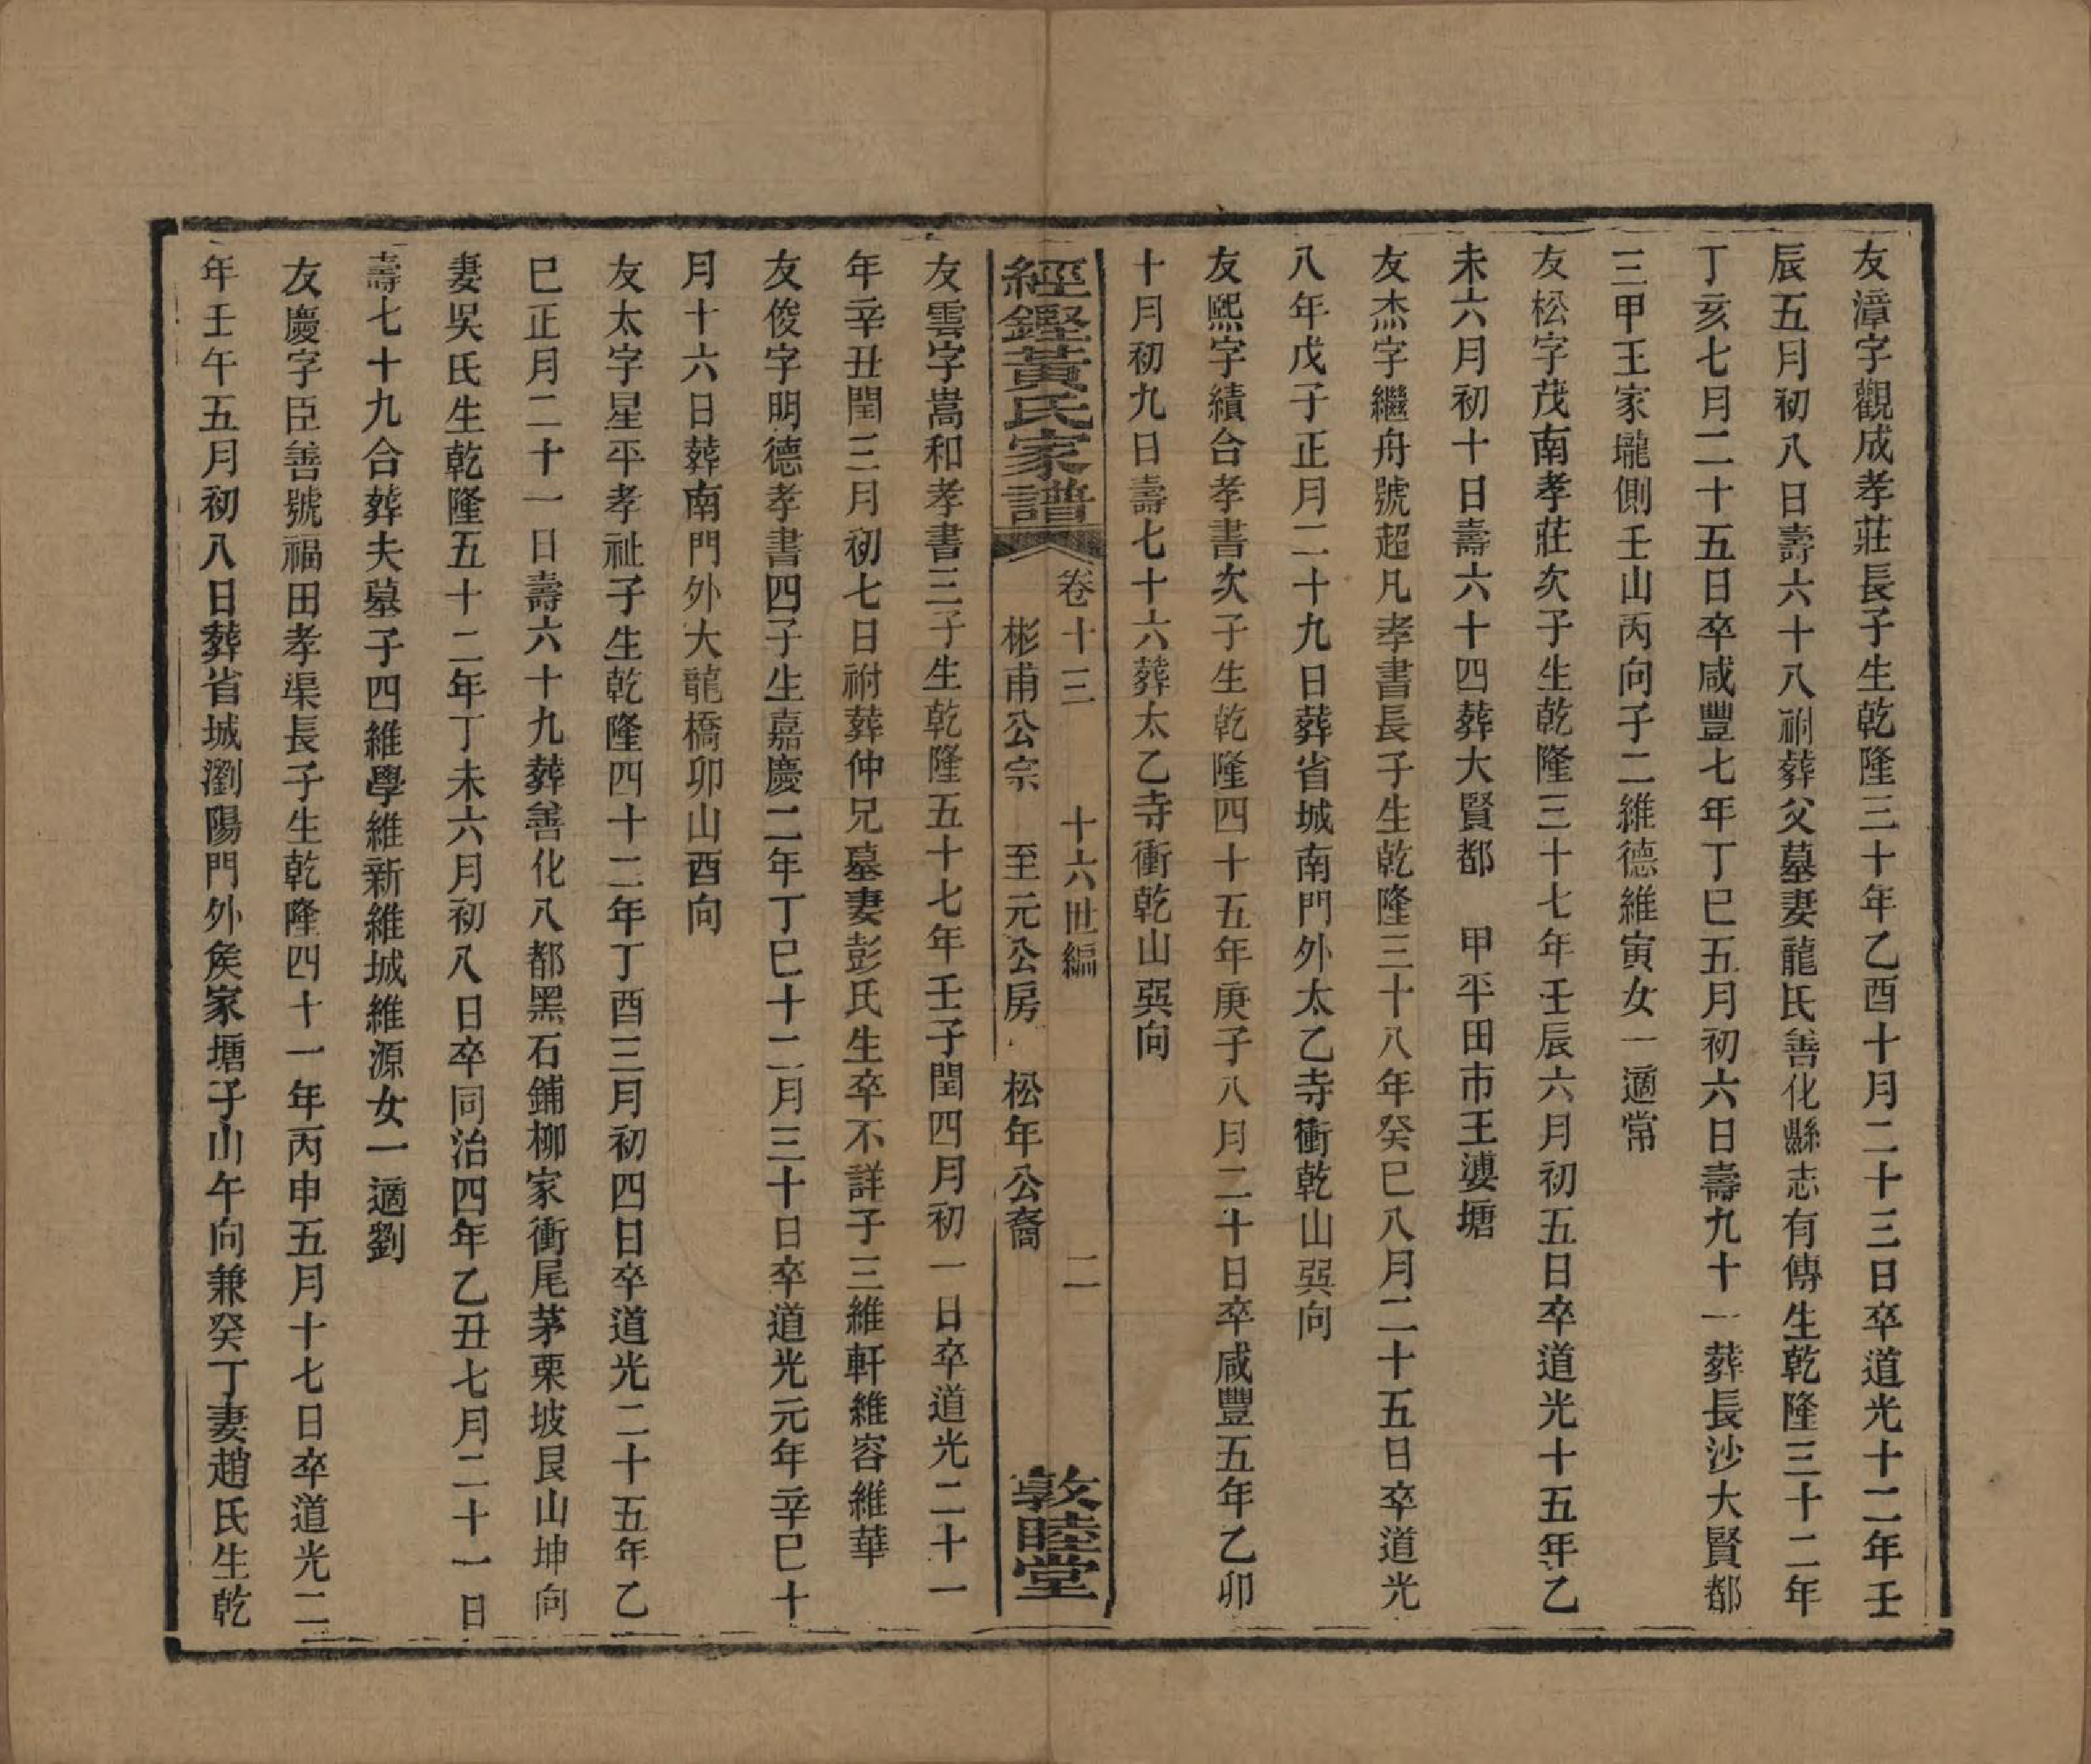 友漳字觀成孝莊長子生乾隆三十年乙酉十月二十三日卒道光十二年壬
辰五月初八日壽六十八祔葬父墓妻龍氏善化縣志有傳生乾隆三十二年
丁亥七月二十五日卒咸豐七年丁巳五月初六日壽九十一葬長沙大賢都
三甲王家壠側壬山丙向子二維德維寅女一適常
友松字茂南孝莊次子生乾隆三十七年壬辰六月初五日卒道光十五年乙
未六月初十日壽六十四葬大賢都　甲平田市王婆塘
友杰字繼舟號超凡孝書長子生乾隆三十八年癸巳八月二十五日卒道光
八年戊子正月二十九日葬省城南門外太乙寺衝乾山巽向
友熙字績合孝書次子生乾隆四十五年庚子八月二十日卒咸豐五年乙卯
十月初九日壽七十六葬太乙寺衝乾山巽向
經鏗黃氏家譜　卷十三　十六世編　二
彬甫公宗　至元公房　松年公裔　敦睦堂
友雲字嵩和孝書三子生乾隆五十七年壬子閏四月初一日卒道光二十一
年辛丑閏三月初七日祔葬仲兄墓妻彭氏生卒不詳子三維軒維容維華
友俊字明德孝書四子生嘉慶二年丁巳十二月三十日卒道光元年辛巳十
月十六日葬南門外大龍橋卯山酉向
友太字星平孝祉子生乾隆四十二年丁酉三月初四日卒道光二十五年乙
巳正月二十一日壽六十九葬善化八都黑石鋪柳家衝尾茅栗坡艮山坤向
妻吳氏生乾隆五十二年丁未六月初八日卒同治四年乙丑七月二十一日
壽七十九合葬夫墓子四維學維新維城維源女一適劉
友慶字臣善號福田孝渠長子生乾隆四十一年丙申五月十七日卒道光二
年壬午五月初八日葬省城瀏陽門外矦家塘子山午向兼癸丁妻趙氏生乾